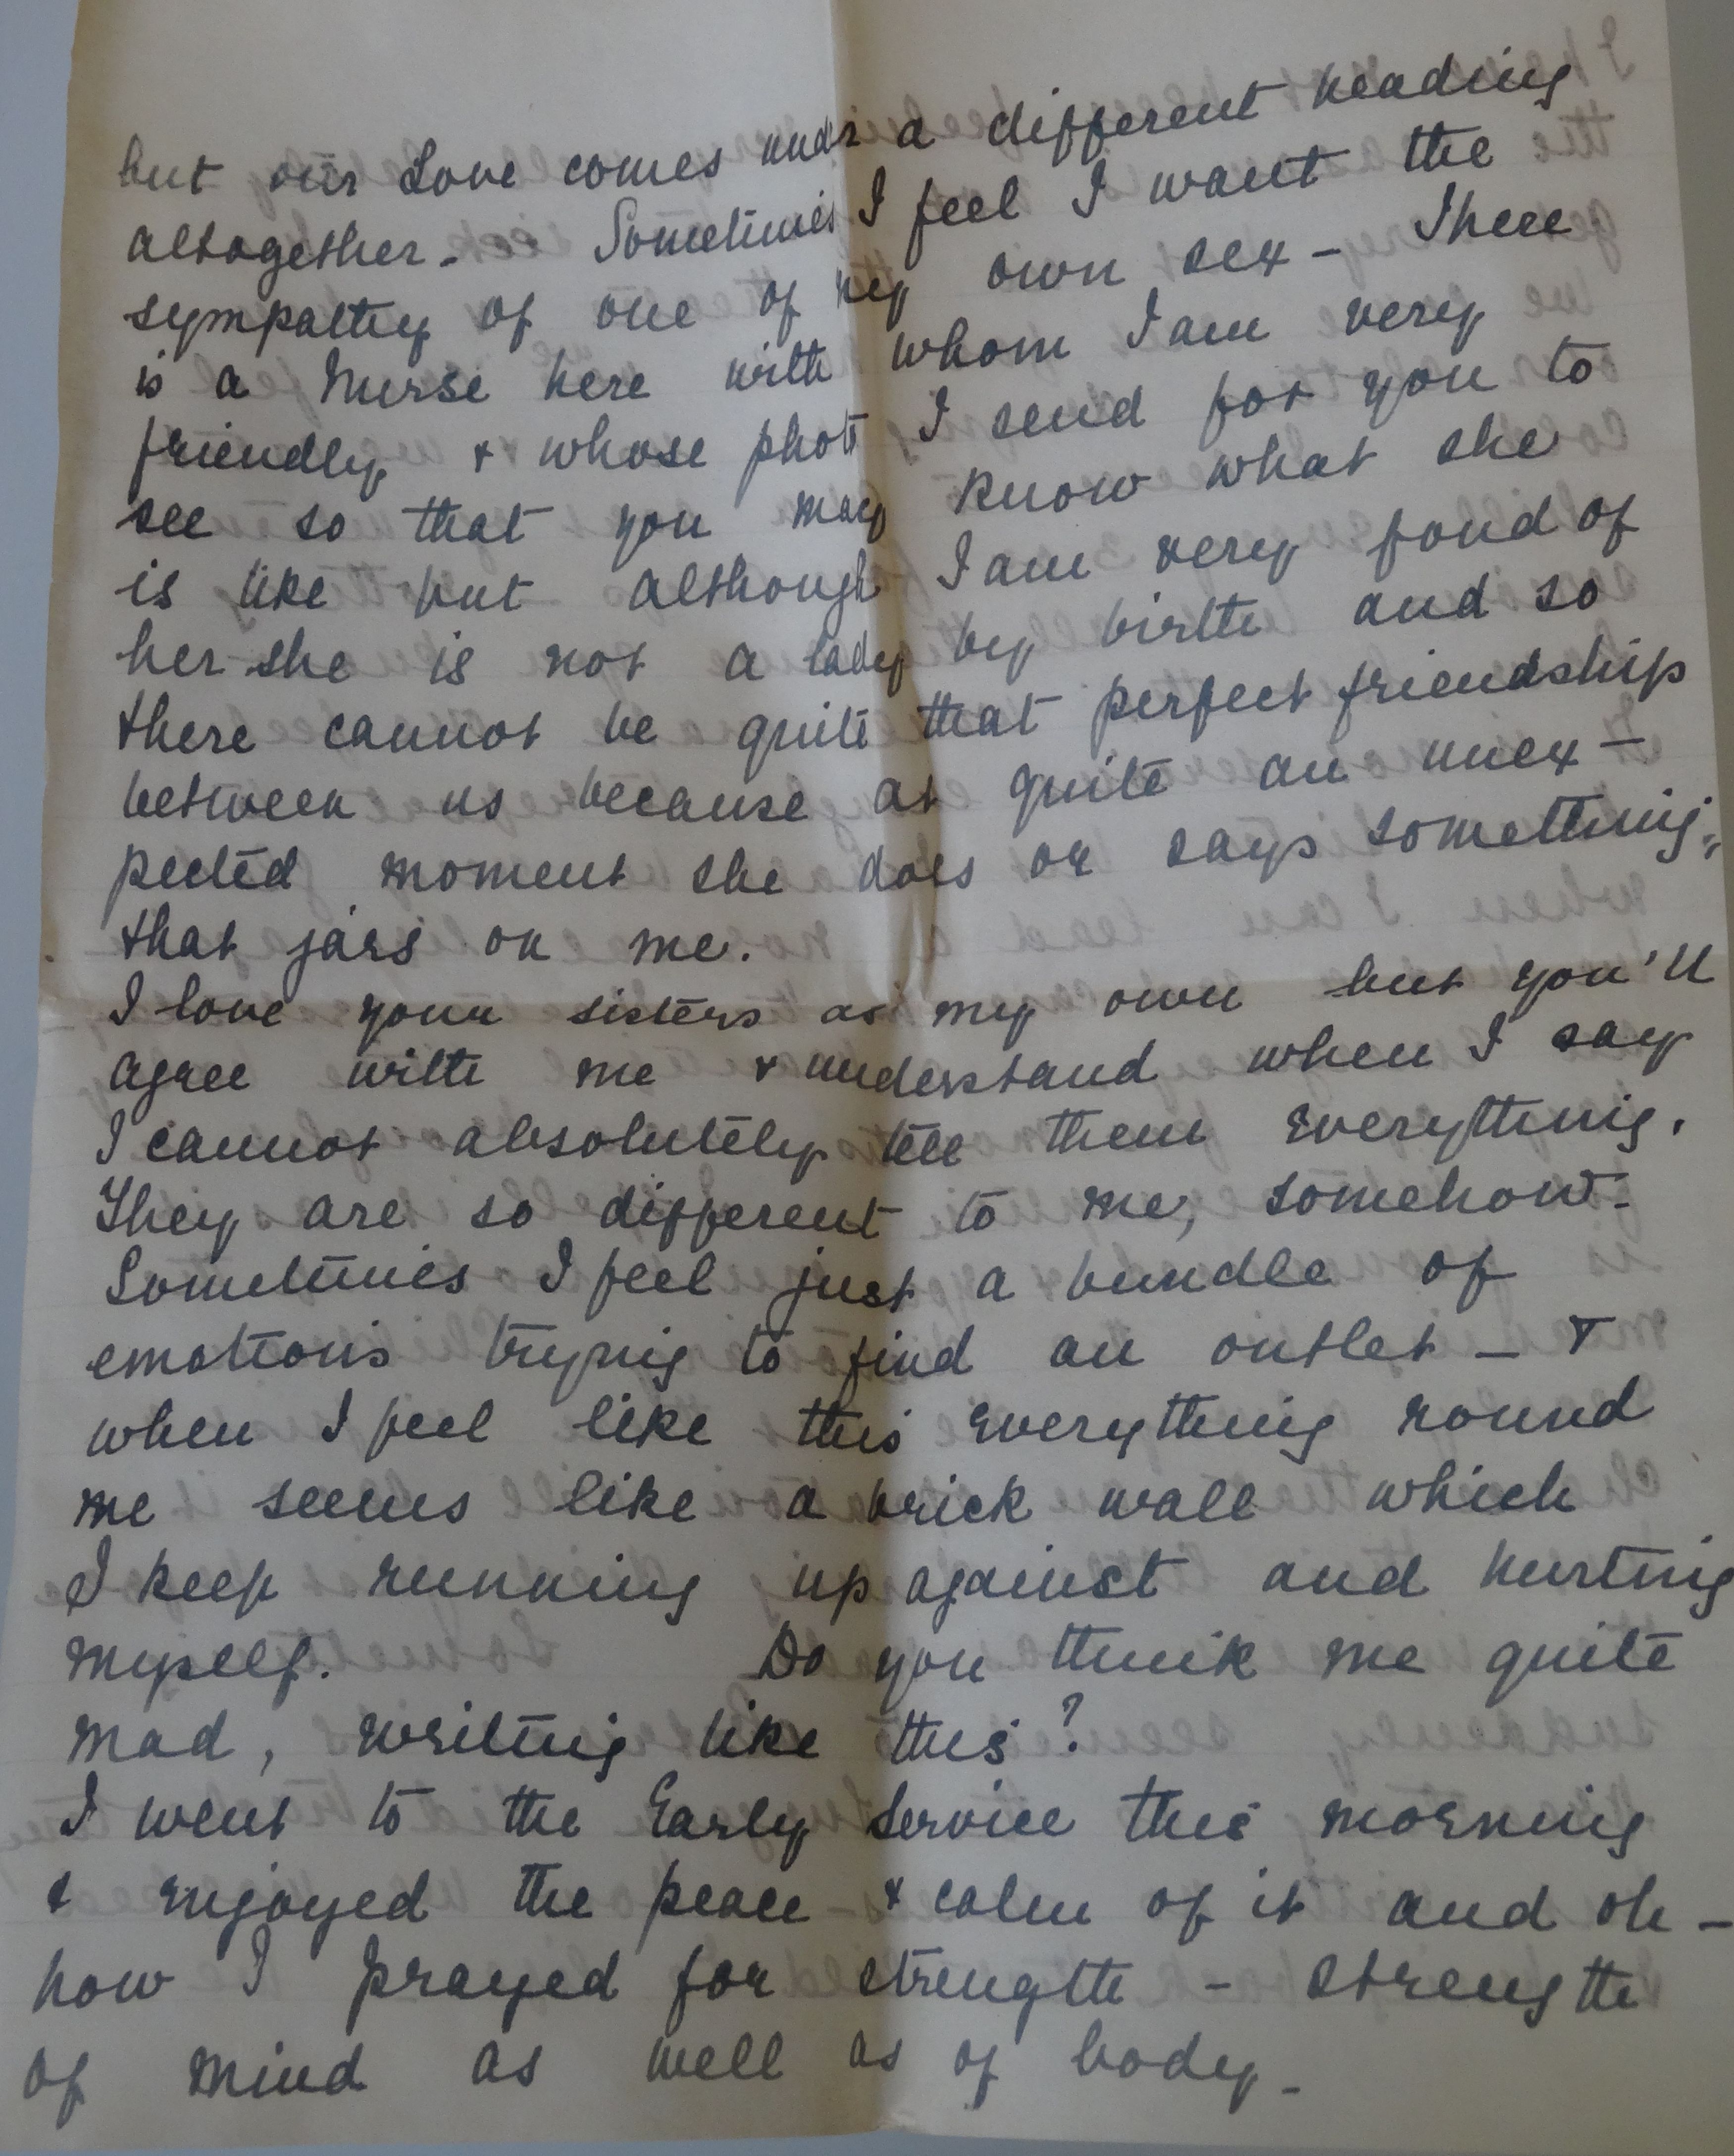 but our Love comes under a different heading
altogether. Sometimes I feel I want the
sympathy of one of my own sex - There
is a Nurse here with whom I am very
friendly & whose photo I send for you to
see so that you may know what she
is like but although I am very fond of
her she is not a lady by birth and so
there cannot be quite that perfect friendship
between us because at quite an unex-
pected moment she does or says something
that jars on me.
I love your sisters as my own but you'll
agree with me & understand when I say
I cannot absolutely tell them everything.
They are so different to me, somehow.
Sometimes I feel just a bundle of
emotions trying to find an outlet - &
when I feel like this everything round
me seems like a brick wall which
I keep running up against and hurting
myself. Do you think me quite
mad, writing like this?
I went to the Early Service this morning
& enjoyed the peace & calm of it and oh -
how I prayed for strength - strength
of mind as well as of body -